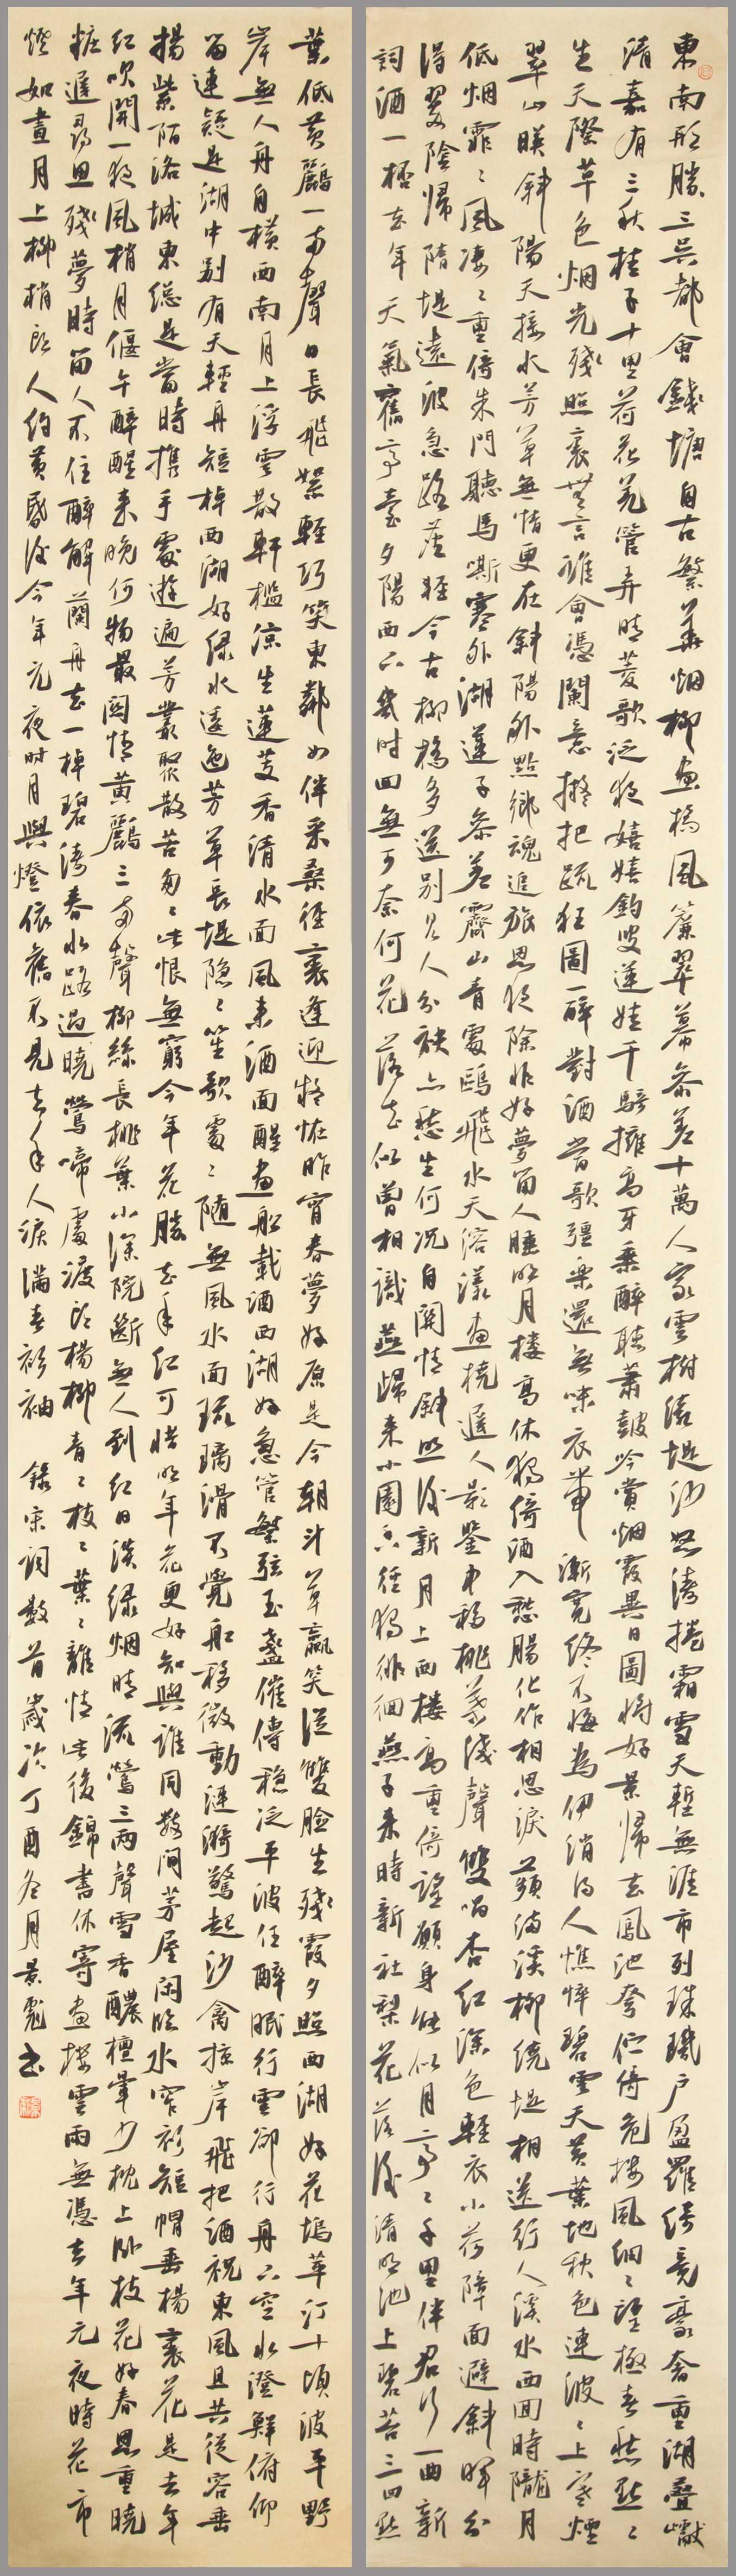 東南形勝三吳都會錢塘自古繁華烟柳畫橋風簾翠幕參差十萬人家雲樹繞堤沙怒濤捲霜雪天塹無涯市列珠璣户盈羅綺競豪奢重湖疊巘
清嘉有三秋桂子十里荷花羌管弄晴菱歌泛夜嬉嬉釣叟蓮娃千騎擁高牙乘醉聽蕭鼓吟賞烟霞異日圖將好景歸去鳳池夸佇倚危樓風細細望極春愁黯黯
生天際草色烟光殘照裏無言誰會憑闌意擬把疏狂圖一醉對酒當歌彊樂還無味衣帶漸寬終不悔為伊消得人憔悴碧雲天黄葉地秋色連波波上寒煙
翠山暎斜陽天接水芳草無情更在斜陽外黯鄉魂追旅思夜除非好夢留人睡明月樓高休獨倚酒入愁腸化作相思淚蘋滿溪柳繞堤相送行人溪水西回時隴月
低烟霏霏風凄凄重倚朱門聽馬嘶寒外湖蓮子參差霽山青處鷗飛水天溶漾畫橈遲人影鑒中移桃葉淺聲雙唱杏紅深色輕衣小荷障面避斜暉分
得翠陰歸隋堤遠波急路塵輕今古柳橋多送別見人分袂亦愁生何況自關情斜照後新月上西樓高重倚望願身能似月亭亭千里伴君行一曲新
詞酒一杯去年天氣舊亭臺夕陽西下幾時回無可奈何花落去似曾相識燕歸來小園香徑獨徘徊燕子來時新社梨花落後清明池上碧苔三四點
葉低黄鸝一兩聲日長飛絮輕巧笑東鄰女伴采桑徑裏逢迎疑怪昨宵春夢好原是今朝斗草贏笑從雙臉生殘霞夕照西湖好花塢苹汀十頃波平野
岸無人舟自橫西南月上浮雲散軒檻涼生蓮芰香清水面風來酒面醒畫船載酒西湖好急管繁弦玉盞催傳穩泛平波任醉眠行雲卻行舟下空水澄鮮俯仰
留連疑是湖中別有天輕舟短棹西湖好緑水逶迤芳草長堤隱隱笙歌處處隨無風水面琉璃滑不覺船移微動漣漪驚起沙禽掠岸飛把酒祝東風且共從容垂
楊紫陌洛城東總是當時携手處遊遍芳叢聚散苦匆匆此恨無窮今年花勝去年紅可惜明年花更好知與誰同數間茅屋閑臨水窄衫短帽垂楊裏花是去年
紅吹開一夜風梢月偃午醉醒來晚何物最關情黄鸝三兩聲柳絲長桃葉小深院斷無人到紅日淡緑烟晴流鶯三兩聲雪香醲檀暈少枕上卧枝花好春思重曉
粧遲尋思殘夢時留人不住醉解蘭舟去一棹碧濤春水路過曉鶯啼處渡頭楊柳青青枝枝葉葉離情此後錦書休寄畫樓雲雨無憑去年元夜時花市
燈如晝月上柳梢頭人約黄昏後今年元夜時月與燈依舊不見去年人淚滿春衫袖 錄宋詞數首歲次丁酉冬月景彪書